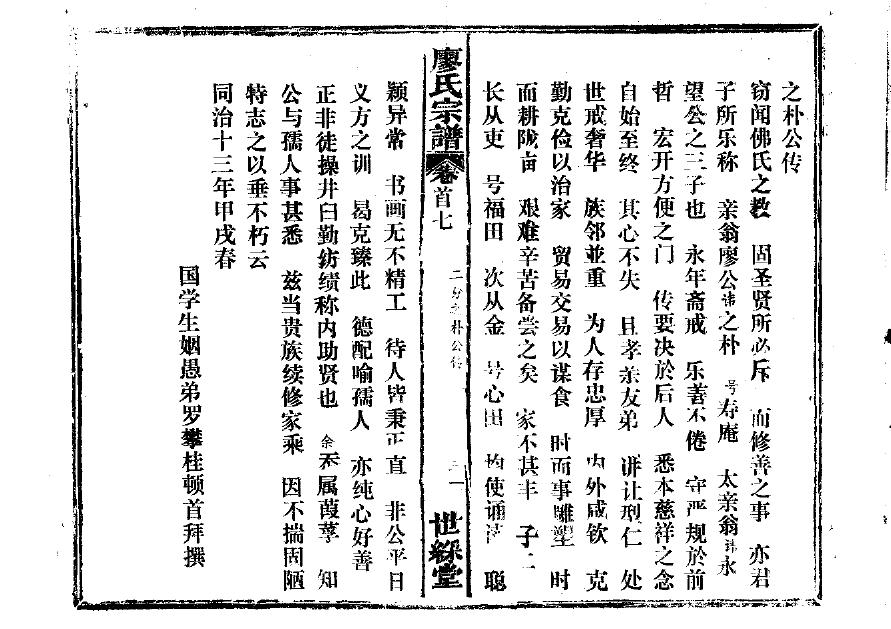 之朴公传
窃闻佛氏之教 固圣贤所必斥 而修善之事 亦君
子所乐称 亲翁廖公讳之朴 号寿庵 太亲翁讳永
望公之三子也 永年斋戒 乐善不倦 守严规於前
哲 宏开方便之门 传要决於后人 悉本慈祥之念
自始至终 其心不失 且孝亲友弟 讲让型仁 处
世戒奢华 族邻並重 为人存忠厚 内外咸钦 克
勤克俭以治家 贸易交易以谋食 时而事雕塑 时
而耕陇亩 艰难辛苦备尝之矣 家不甚丰 子二
长从吏 号福田 次从金 号心田 均使诵读 聪
廖氏宗譜
卷首七
二分之朴公传
世綵堂
颖异常 书画无不精工 待人皆秉正直 非公平日
义方之训 曷克臻此 德配喻孺人 亦纯心好善
正非徒操井臼勤纺绩称内助贤也 余忝属葭莩 知
公与孺人事甚悉 兹当贵族续修家乘 因不揣固陋
特志之以垂不朽云
同治十三年甲戌春
国学生姻愚弟罗攀桂顿首拜撰